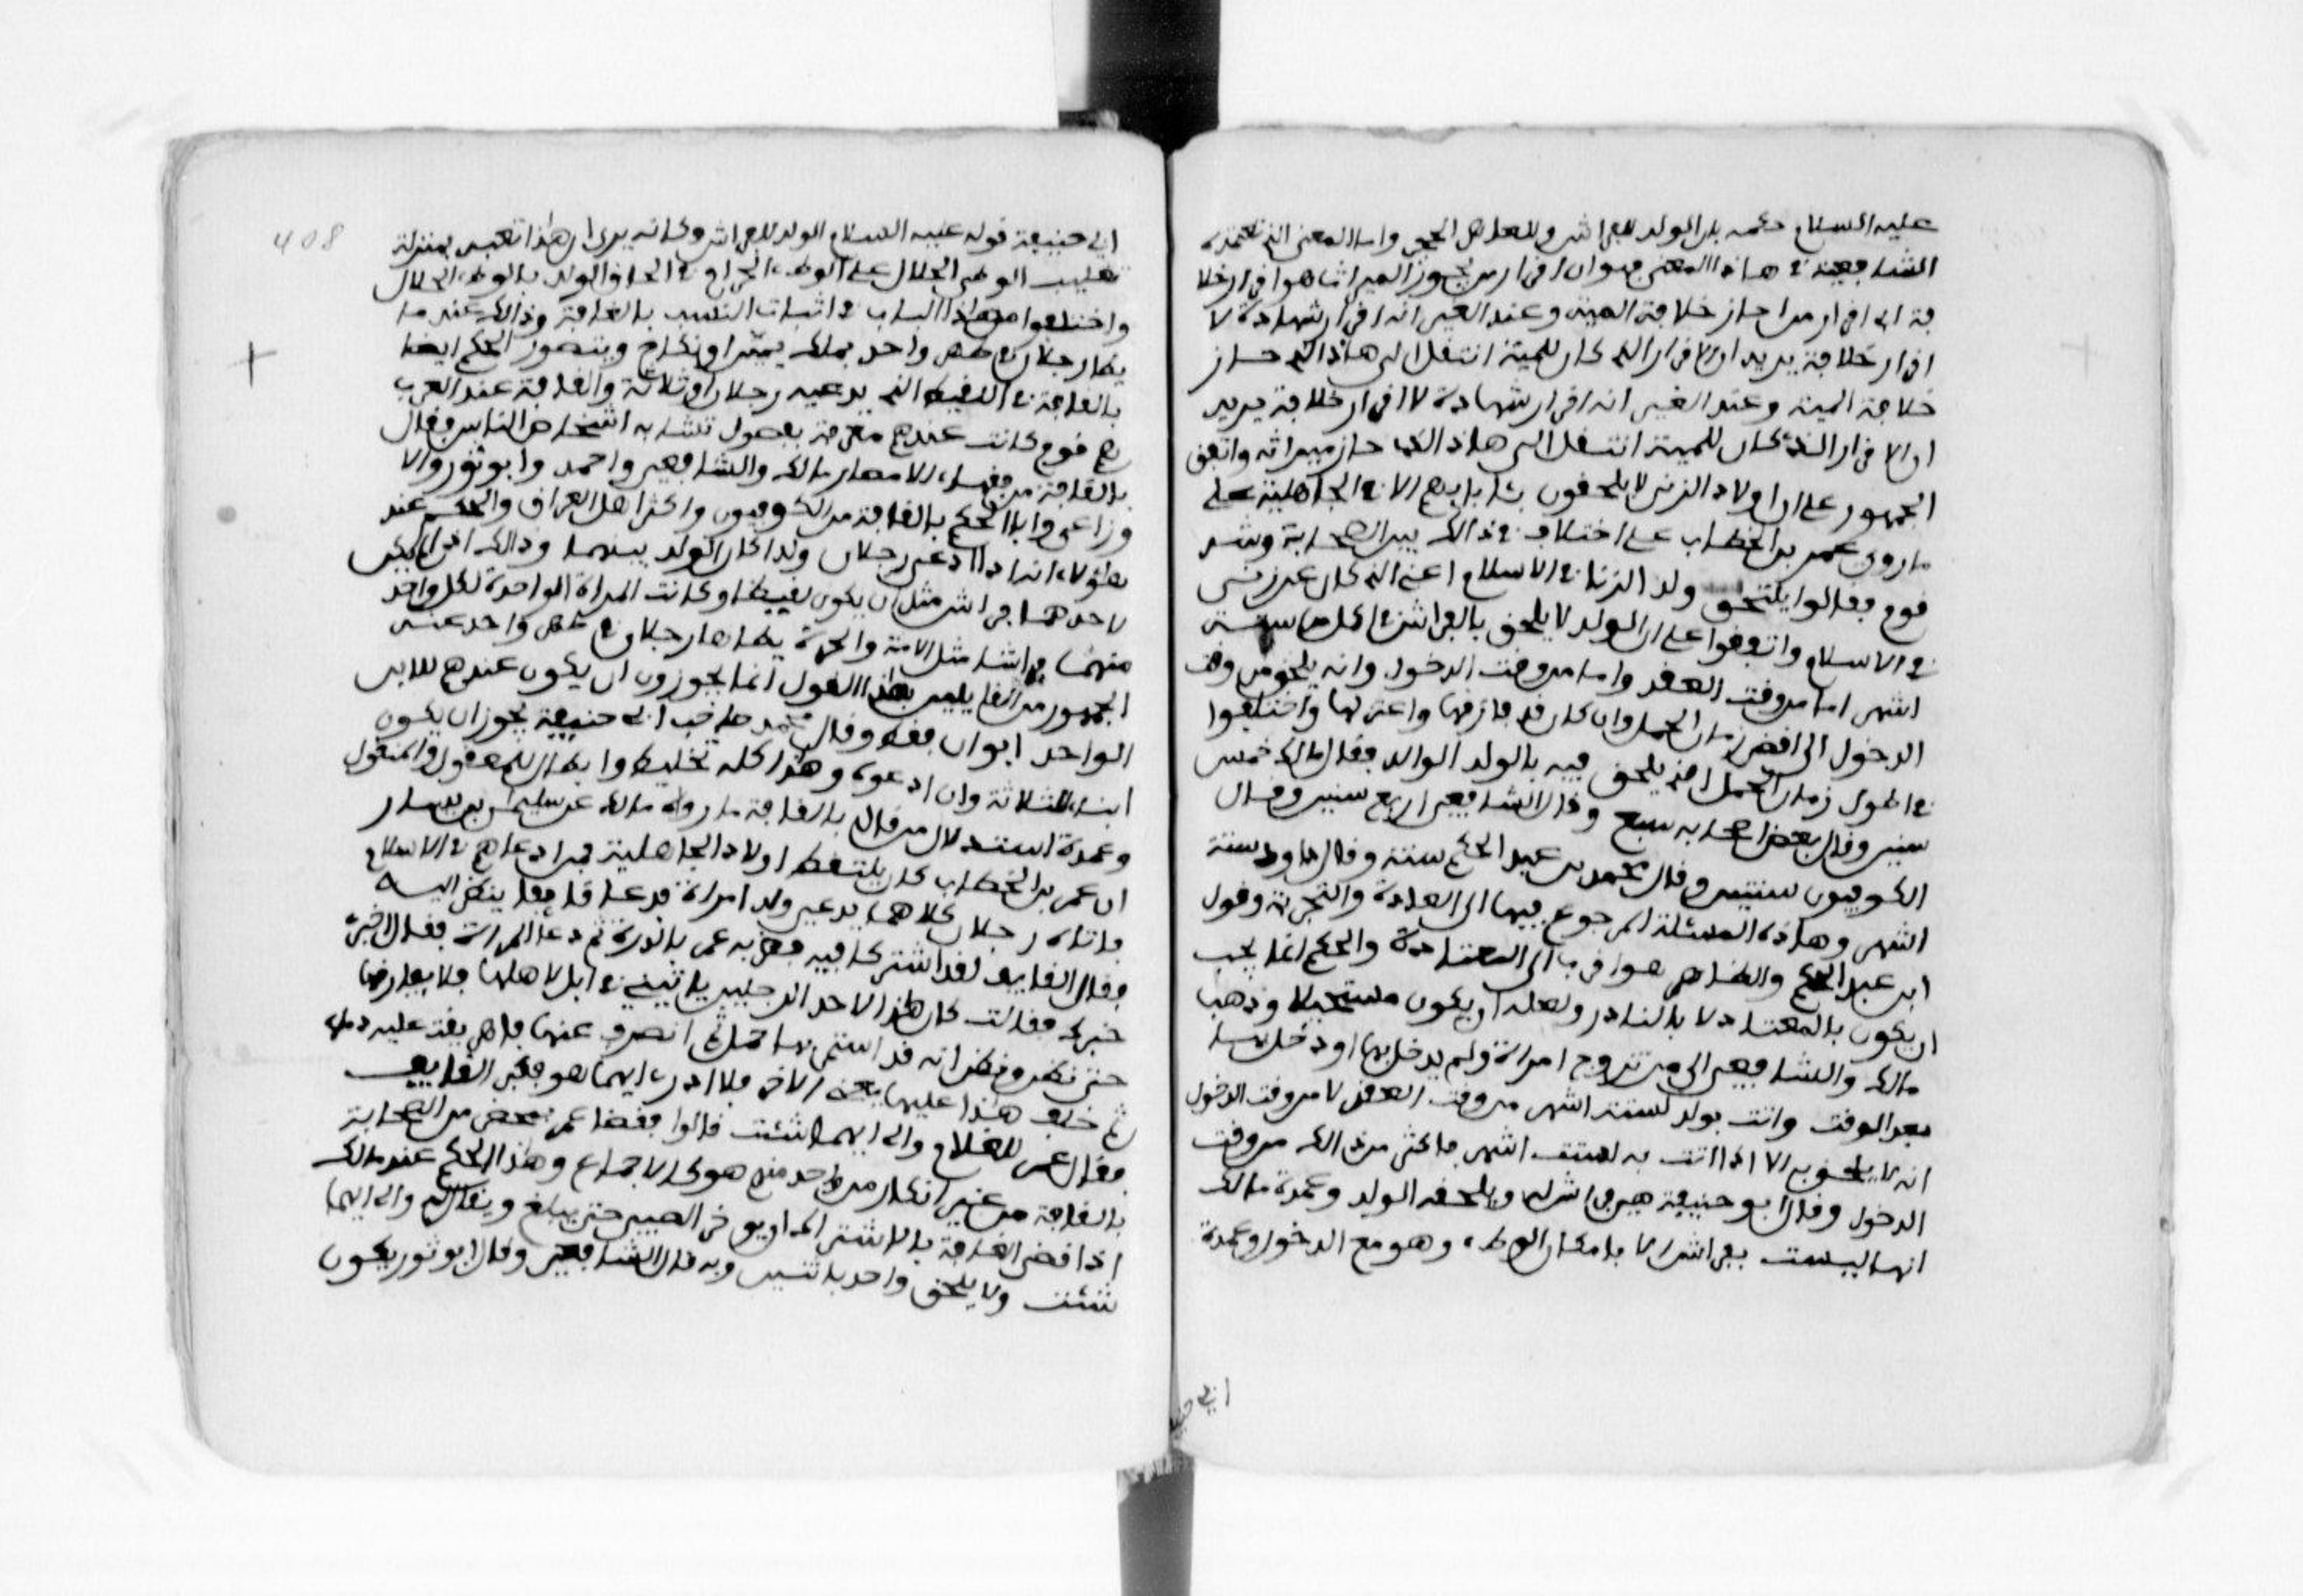 عليه السلام حكمه بان الولد للفراش وللعاهر الحجر واما المعنى الذي تعتمده
الشافعية في هاذا المعنى فهو ان اقرار من يجوز الميراث هو اقرار خلا
فة اي اقرار من حاز خلافة الميت وعند الغير انه اقرار شهادة لا
اقرار خلافة يريد ان الاقرار الذي كان للميت انتقل الى هاذا الذي حاز
خلافة الميت وعند الغير انه اقرار شهادة لا اقرار خلافة يريد
ان الاقرار الذي كان للميت انتقل الى هاذا الذي حاز ميراثه واتفق
الجمهور على ان اولاد الزنى لا يلحقون بئابايهم الا في الجاهلية على
ما روي عمر بن الخطاب على اختلاف في ذالك بين الصحابة وشذ
قوم فقالوا يلتحق ولد الزنا في الاسلام اعني الذي كان عن زنى
في الاسلام واتفقوا على ان الولد لا يلحق بالفراش في اقل من ستة
اشهر اما من وقت العقد واما من وقت الدخول وانه يلحق من وقت
الدخول الى اقصر زمان الحمل وان كان قد فارقها واعتزلها واختلفوا
في اطول زمان الحمل الذي يلحق فيه بالولد الوالد فقال مالك خمس
سنين وقال بعض اصحابه سبع وقال الشافعي اربع سنين وقال
الكوفيون سنتين وقال محمد بن عبد الحكم سنة وقال داود ستة
اشهر وهاذه المسئلة المرجوع فيها الى العادة والتجربة وقول
ابن عبد الحكم والظاهر هو اقرب الى المعتادة والحكم انما يجب
ان يكون بالمعتاد لا بالنادر ولعله ان يكون مستحيلا وذهب
مالك والشافعي الى من تزوج امراة ولم يدخل بها او دخل بها
بعد الوقت واتت بولد لستة اشهر من وقت العقد لا من وقت الدخول
انه لا يلحق به الا اذا اتت به لستة اشهر فاكثر من ذالك من وقت
الدخول وقال ابو حنيفة هي فراش له ويلحقه الولد وعمدة مالك
انها ليست بفراش الا بامكان الوطء وهو مع الدخول وعمدة
ابي حنيفة
408
ابي حنيفة قوله عليه السلام الولد للفراش وكانه يرى ان هذا تعبد بمنزلة
تغليب الوطء الحلال على الوطء الحرام في الحاق الولد بالوطء الحلال
واختلفوا من هاذا الباب في اثبات النسب بالقافة وذالك عند ما
يطا رجلان في طهر واحد بملك يمين او نكاح ويتصور الحكم ايضا
بالقافة في اللقيط الذي يدعيه رجلان او ثلاثة والقافة عند العرب
هم قوم كانت عندهم معرفة بفصول تشابه اشخاص الناس فقال
بالقافة من فقهاء الامصار مالك والشافعي واحمد وابو ثور والا
وزاعي وابا الحكم بالقافة من الكوفيون واكثر اهل العراق والحكم عند
هؤلاء انه اذا ادعى رجلان ولدا كان الولد بينهما وذالك اذا لم يكن
لاحدهما فراش مثل ان يكون لقيطا او كانت المراة الواحدة لكل واحد
منهما فراشا مثل الامة والحرة يطاها رجلان في طهر واحد عند
الجمهور من القايلين بهذا القول انما يجوزون ان يكون عندهم للابن
الواحد ابوان فقط وقال محمد صاحب ابي حنيفة يجوز ان يكون
ابنا لثلاثة وان ادعوه وهذا كله تخليط وابطال للمعقول والمنقول
وعمدة استدلال من قال بالقافة ما رواه مالك عن سليمان بن يسار
ان عمر بن الخطاب كان يلتقط اولاد الجاهلية بمن ادعاهم في الاسلام
فاتاه رجلان كلاهما يدعي ولد امراة فدعا قايفا ينظر اليه
فقال القايف لقد اشتركا فيه فضربه عمر بالدرة ثم دعا المراة فقال اخبري
خبرك فقالت كان هذا لاحد الرجلين ياتيني في ابل لاهلها فلا يفارقها
حتى نظن ويظن انه قد استمر بها حمل ثم انصرف عنها فاهريقت عليه دماء
ثم خلف هذا عليها يعني الاخر فلا ادري ايهما هو فكبر القايف
فقال عمر للغلام وال ايهما شئت قالوا فقضا عمر بمحضر من الصحابة
بالقافة من غير انكار من واحد منهم هو كالاجماع وهذا الحكم عند مالك
اذا قضى القافة بالاشتراك ان يوخر الصبي حتى يبلغ ويقال له وال ايهما
شئت ولا يلحق واحد باثنين وبه قال الشافعي وقال ابو ثور يكون